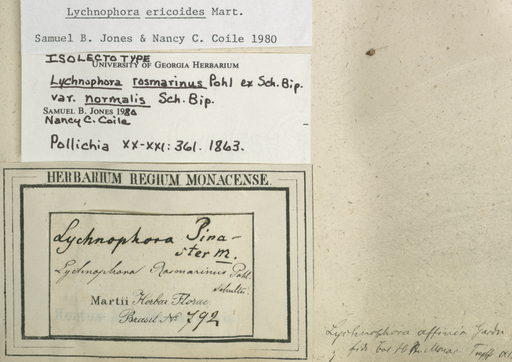 Lychnophora ericoides Mart.
Samuel B. Jones & Nancy C. Coile 1980
ISOLECTOTYPE
UNIVERSITY OF GEORGIA HERBARIUM
Lychnophora rosmarinus Pohl ex Sch. Bip.
var. normalis Sch. Bip.
SAMUEL B. JONES 1980
Nancy C. Coile
Pollichia XX-XXI: 361. 1863.
HERBARIUM REGIUM MONACENSE.
Lychnophora Pina-
ster m.
Lychnophora Rosmarinus Pohl.
Schultes.
Martii Herbar. Florae
Brasil. No 792
Lychnophora affinis